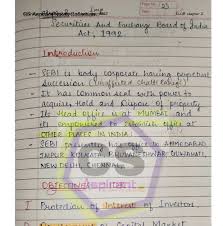 Securities And Exchange Board of India
Act, 1992.
Introduction
- SEBI is body corporate having perpetual
Succession
- It has Common Seal with power to
acquire, Hold and Dispose of property
- Its Head office is at MUMBAI and
its empowered to Establish office at
OTHER PLACES IN INDIA
- SEBI presently has office in AHMEDABAD
JAIPUR, KOLKATA, BHUBANESHWAR, GUWAHATI,
NEW DELHI, CHENNAI
CS
I Protection of Interest of Investors
Capital Market